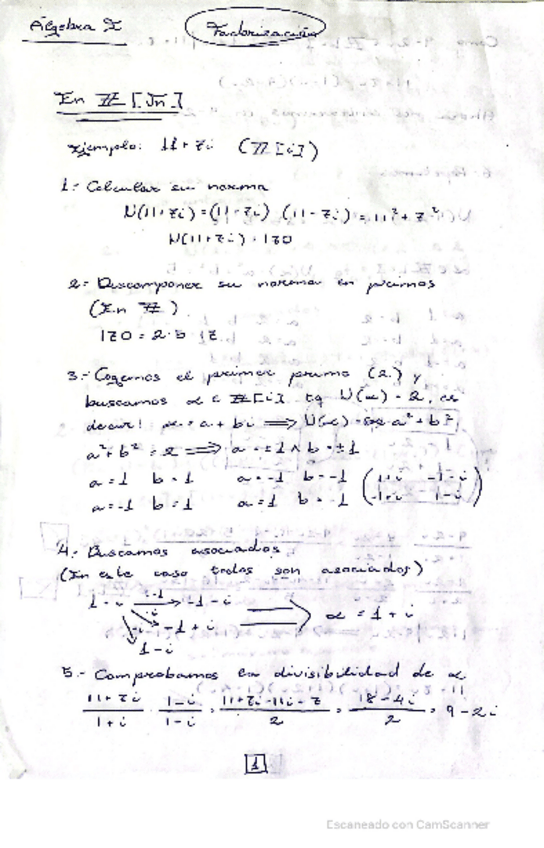 Álgebra I
Factorización
En ℤ[√n]
Ejemplo: 11+7i (ℤ[i])
1.- Calcular su norma
N(11+7i) = (11+7i) (11-7i) = 11² + 7²
N(11+7i) = 170
2.- Descomponer su norma en primos
(En ℤ)
170 = 2·5·17
3.- Cogemos el primer primo (2) y
buscamos α ∈ ℤ[i] tq N(α) = 2, es
decir: α = a + bi ⟹ N(α) = a² + b²
a² + b² = 2 ⟹ a = ±1 ∧ b = ±1
a=1 b=1 a=-1 b=-1 (1+i -1-i
a=-1 b=1 a=1 b=-1 -1+i 1-i)
4.- Buscamos asociados
(En este caso todos son asociados)
-1-i
-1+i ⟹ α = 1+i
1-i
5.- Comprobamos la divisibilidad de α
11+7i/1+i · 1-i/1-i = 11+7i-11i+7/2 = 18-4i/2 = 9-2i
1
Escaneado con CamScanner